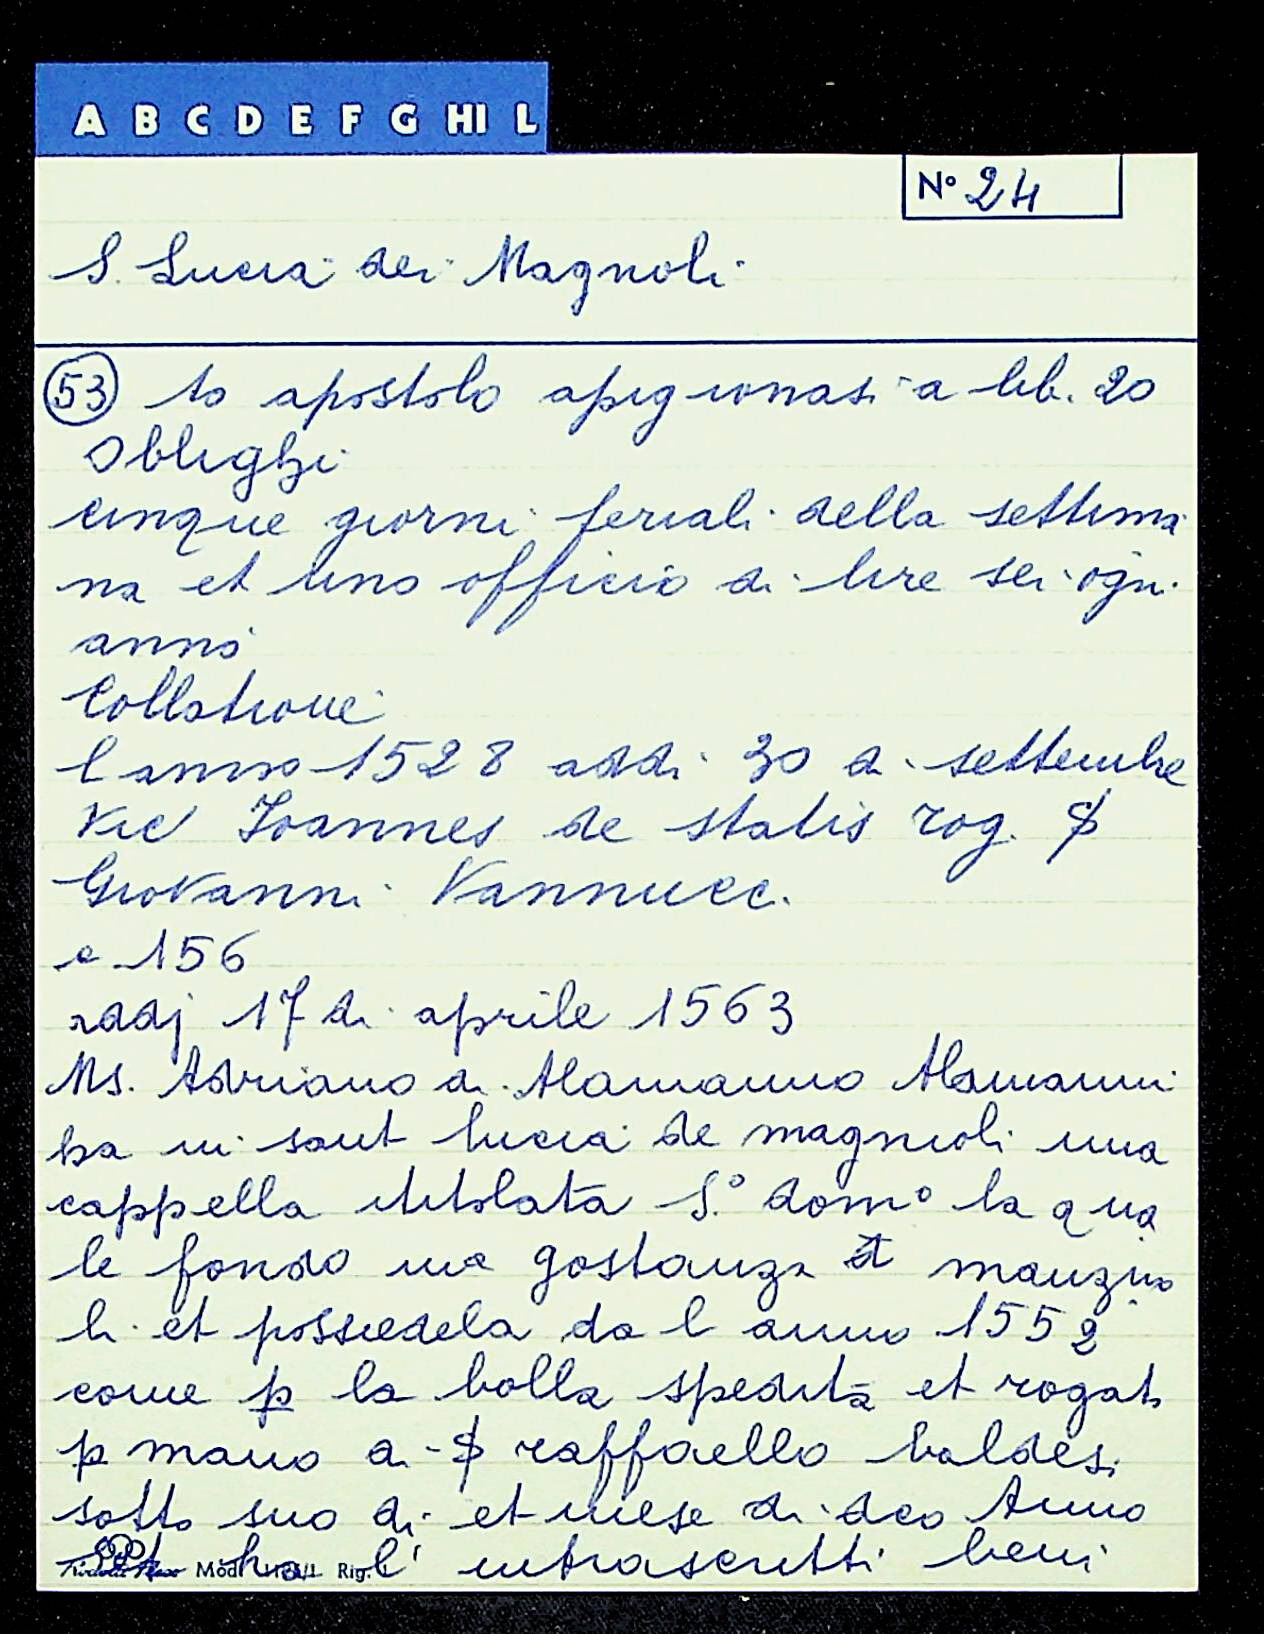 A B C D E F G HI L
N° 24
S. Lucia dei Magnoli
53 to apostolo apigionasi a lib. 20
Oblighi
cinque giorni feriali della settima
na et uno officio di lire sei ogni
anno
Collatione
l anno 1528 addi 30 di settembre
Vic Joannes de statis rog. $
Giovanni Vannucc.
c 156
addj 17 di aprile 1563
Ms. Adriano di Alamanno Alamanni
ha in sant lucia de magnioli una
cappella titolata S.° dom° la qua
le fondo ma gostanza et manzuo
li et possiedela da l anno 1552
come p la bolla spedita et rogato
p mano di $ raffaello baldesi
sotto suo di et mese di deo Anno
Mod. Rig.
ha l' intrascritti beni